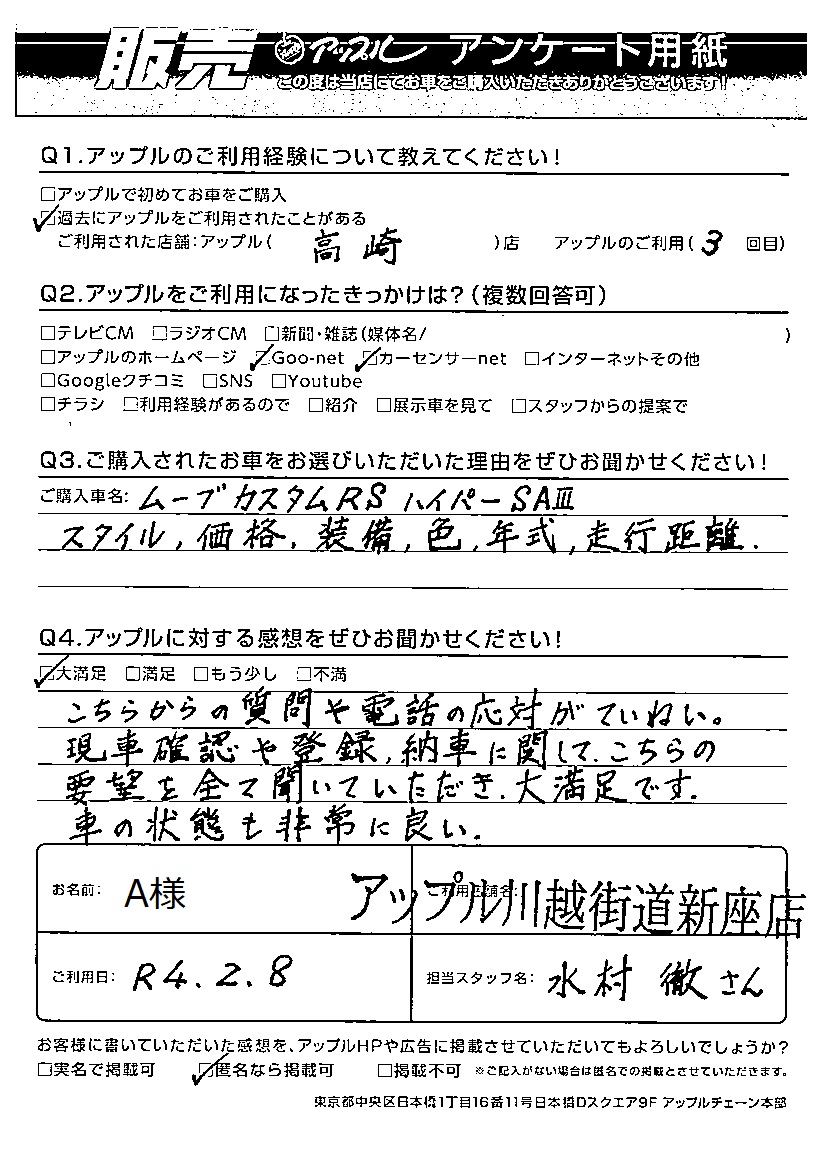 販売 アップル アンケート用紙
この度は当店にてお車をご購入いただきありがとうございます!
Q1.アップルのご利用経験について教えてください!
□アップルで初めてお車をご購入
☑過去にアップルをご利用されたことがある
ご利用された店舗:アップル( 高崎 )店 アップルのご利用( 3 回目)
Q2.アップルをご利用になったきっかけは?(複数回答可)
□テレビCM □ラジオCM □新聞・雑誌(媒体名/ )
□アップルのホームページ ☑Goo-net ☑カーセンサーnet □インターネットその他
□Googleクチコミ □SNS □Youtube
□チラシ □利用経験があるので □紹介 □展示車を見て □スタッフからの提案で
Q3.ご購入されたお車をお選びいただいた理由をぜひお聞かせください!
ご購入車名: ムーブカスタムRS ハイパーSAⅢ
スタイル,価格,装備,色,年式,走行距離.
Q4.アップルに対する感想をぜひお聞かせください!
☑大満足 □満足 □もう少し □不満
こちらからの質問や電話の応対がていねい。
現車確認や登録,納車に関して、こちらの
要望を全て聞いていただき、大満足です。
車の状態も非常に良い。
お名前: A様 ご利用店舗名: アップル川越街道新座店
ご利用日: R4.2.8 担当スタッフ名: 水村 徹さん
お客様に書いていただいた感想を、アップルHPや広告に掲載させていただいてもよろしいでしょうか?
□実名で掲載可 ☑匿名なら掲載可 □掲載不可 ※ご記入がない場合は匿名での掲載とさせていただきます。
東京都中央区日本橋1丁目16番11号日本橋Dスクエア9F アップルチェーン本部